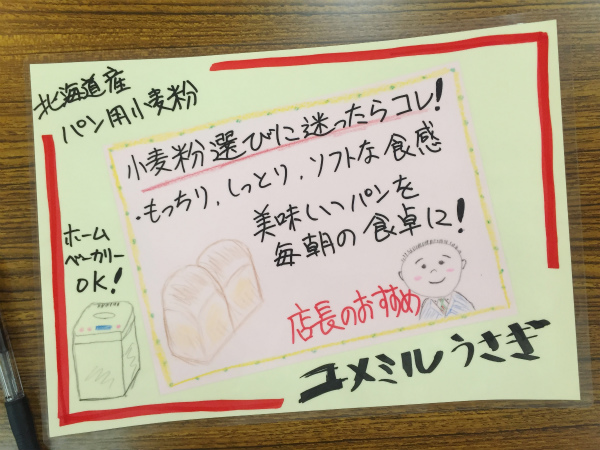 北海道産
パン用小麦粉
小麦粉選びに迷ったらコレ!
・もっちり、しっとり、ソフトな食感
美味しいパンを
毎朝の食卓に!
ホーム
ベーカリー
OK!
店長のおすすめ
ユメミルうさぎ